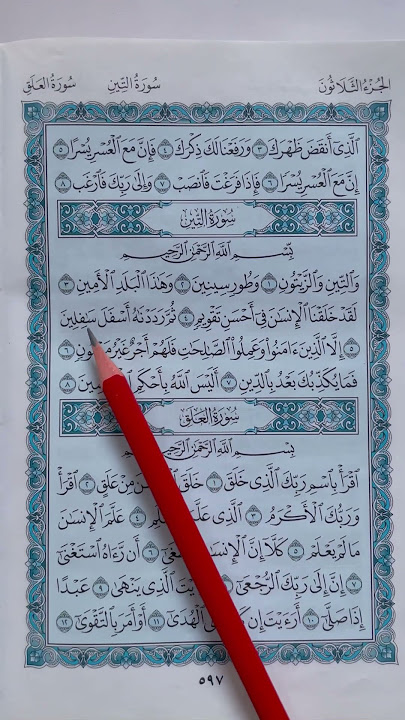 الجُزْءُ الثَّلَاثُونَ سُورَةُ التِّينِ سُورَةُ العَلَقِ
ٱلَّذِىٓ أَنقَضَ ظَهْرَكَ ٣ وَرَفَعْنَا لَكَ ذِكْرَكَ ٤ فَإِنَّ مَعَ ٱلْعُسْرِ يُسْرًا ٥
إِنَّ مَعَ ٱلْعُسْرِ يُسْرًا ٦ فَإِذَا فَرَغْتَ فَٱنصَبْ ٧ وَإِلَىٰ رَبِّكَ فَٱرْغَب ٨
سُورَةُ التِّينِ
بِسْمِ ٱللَّهِ ٱلرَّحْمَٰنِ ٱلرَّحِيمِ
وَٱلتِّينِ وَٱلزَّيْتُونِ ١ وَطُورِ سِينِينَ ٢ وَهَٰذَا ٱلْبَلَدِ ٱلْأَمِينِ ٣
لَقَدْ خَلَقْنَا ٱلْإِنسَٰنَ فِىٓ أَحْسَنِ تَقْوِيمٍ ٤ ثُمَّ رَدَدْنَٰهُ أَسْفَلَ سَٰفِلِينَ
٥ إِلَّا ٱلَّذِينَ ءَامَنُوا۟ وَعَمِلُوا۟ ٱلصَّٰلِحَٰتِ فَلَهُمْ أَجْرٌ غَيْرُ ٦
فَمَا يُكَذِّبُكَ بَعْدُ بِٱلدِّينِ ٧ أَلَيْسَ ٱللَّهُ بِأَحْكَمِ ٨
سُورَةُ العَلَقِ
بِسْمِ ٱللَّهِ ٱلرَّحْمَٰنِ ٱلرَّحِيمِ
ٱقْرَأْ بِٱسْمِ رَبِّكَ ٱلَّذِى خَلَقَ ١ خَلَقَ مِنْ عَلَقٍ ٢ ٱقْرَأْ
وَرَبُّكَ ٱلْأَكْرَمُ ٣ ٱلَّذِى عَلَّمَ ٤ عَلَّمَ ٱلْإِنسَٰنَ
مَا لَمْ يَعْلَمْ ٥ كَلَّآ إِنَّ ٱلْإِنسَٰنَ ٦ أَن رَّءَاهُ ٱسْتَغْنَىٰٓ
٧ إِنَّ إِلَىٰ رَبِّكَ ٱلرُّجْعَىٰٓ ٨ ٱلَّذِى يَنْهَىٰ ٩ عَبْدًا
إِذَا صَلَّىٰٓ ١٠ أَرَءَيْتَ إِن ٱلْهُدَىٰٓ ١١ أَوْ أَمَرَ بِٱلتَّقْوَىٰٓ ١٢
٥٩٧